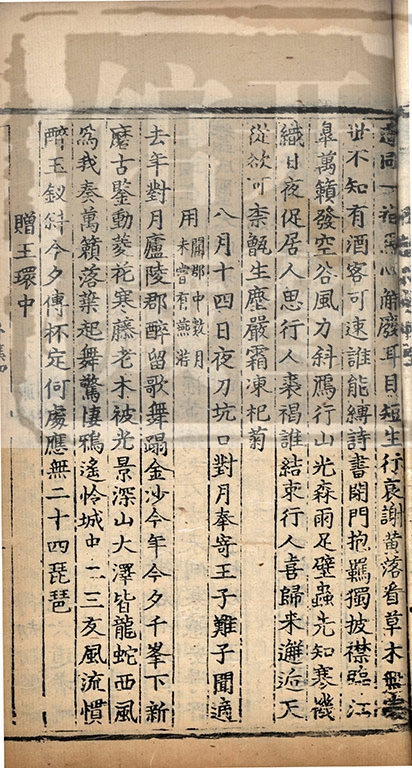 同一心解廢耳目短生行衰謝黃落看草木
世不知有酒客可速誰能縛詩書閉門抱羈獨披襟臨江
皋萬籟發空谷風力斜鴈行山光森雨足壁蟲先知寒機
織日夜促居人思行人裘褐誰結束行人喜歸來邂逅天
從欲可柰甑生塵嚴霜凍杞菊
八月十四日夜刀坑口對月奉寄王子難子聞適
用
聞郡中數月
未嘗有燕游
去年對月廬陵郡醉留歌舞蹋金沙今年今夕千峯下新
磨古鑒動菱花寒藤老木被光景深山大澤皆龍蛇西風
爲我奏萬籟落葉起舞驚棲鴉遙怜城中二三友風流慣
醉玉釵斜今夕傳杯定何處應無二十四琵琶
贈王環中